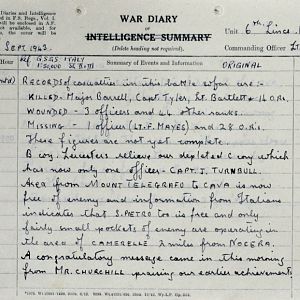 Diaries and Intelligence
WAR DIARY
OR
INTELLIGENCE SUMMARY
(Delete heading not required).
Unit 6th Lincs.
Commanding Officer Lt
SEPT. 1943.
Ref. G.S.G.S. ITALY
Summary of Events and Information
ORIGINAL
Records of casualties in this battle so far are:-
KILLED - Major Barrell, Capt. Tyler, Lt. Bartlett & 14 O.Rs.
WOUNDED - 3 officers and 44 other ranks.
MISSING - 1 officer (LT. F. MAYES) and 28 O.Rs.
These figures are not yet complete.
B coy. Leicesters relieve our depleted C coy which
has now only one officer - CAPT. J. TURNBULL.
Area from MOUNT TELEGRAFO to CAVA is now
free of enemy and information from Italians
indicates that S. PIETRO too is free and only
fairly small pockets of enemy are operating in
the area of CAMERELLE 2 miles from NOCERA.
A congratulatory message came in this morning
from MR. CHURCHILL praising our earlier achievements